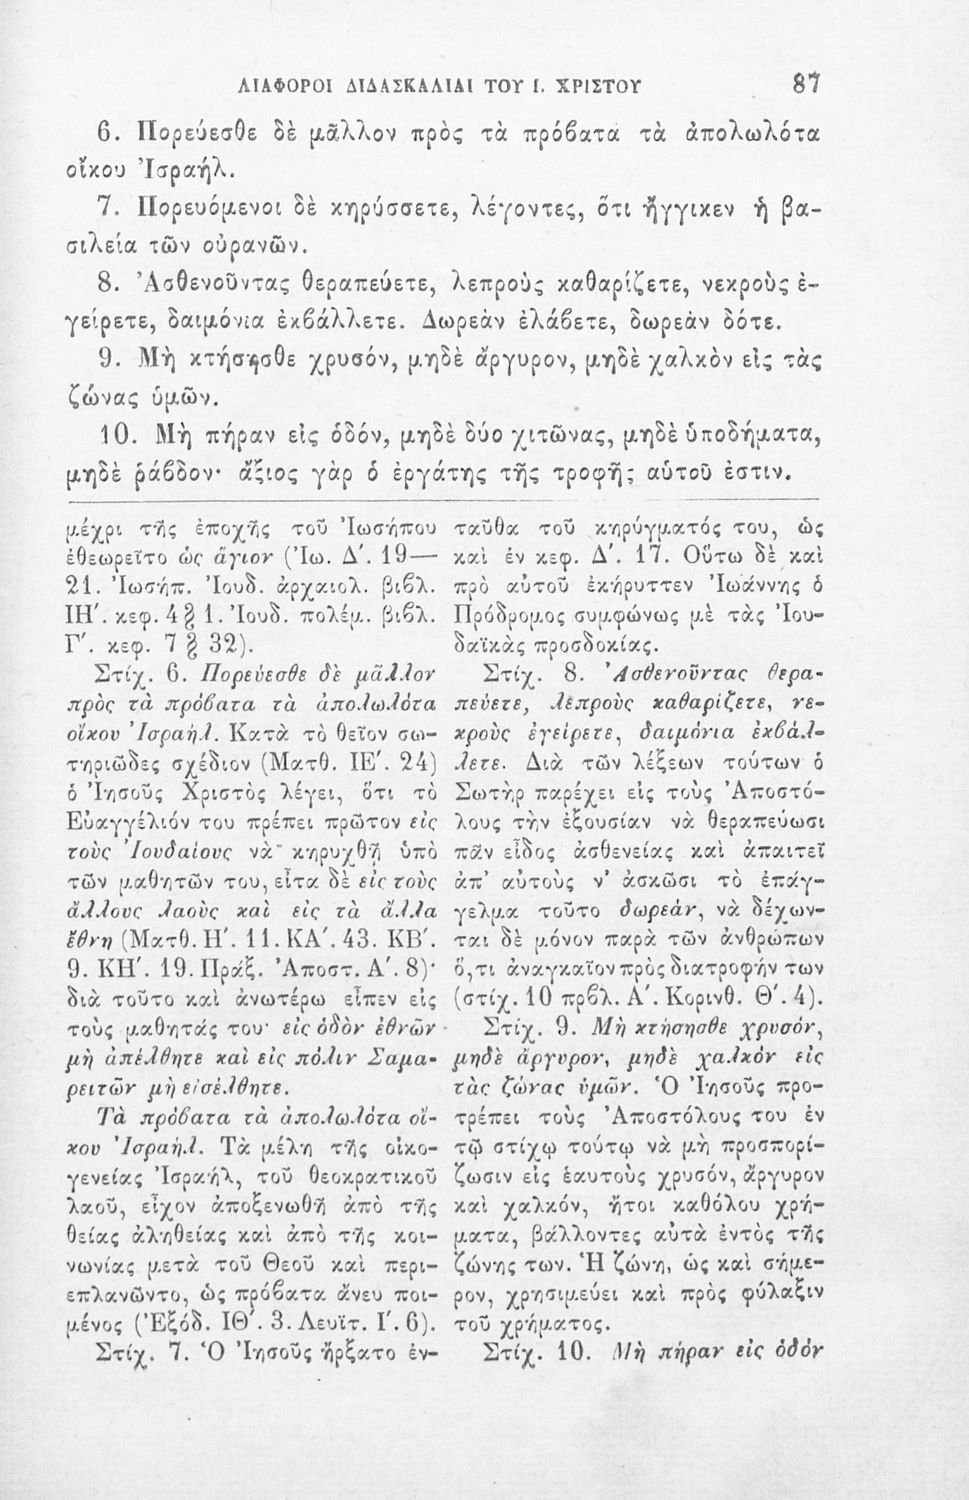 ΔΙΑΦΟΡΟΙ ΔΙΔΑΣΚΑΛΙΑΙ ΤΟΥ Ι. ΧΡΙΣΤΟΥ 87
6. Πορεύεσθε δὲ μᾶλλον πρὸς τὰ πρόβατα τὰ ἀπολωλότα
οἴκου Ἰσραήλ.
7. Πορευόμενοι δὲ κηρύσσετε, λέγοντες, ὅτι ἤγγικεν ἡ βα-
σιλεία τῶν οὐρανῶν.
8. Ἀσθενοῦντας θεραπεύετε, λεπροὺς καθαρίζετε, νεκροὺς ἐ-
γείρετε, δαιμόνια ἐκβάλλετε. Δωρεὰν ἐλάβετε, δωρεὰν δότε.
9. Μὴ κτήσησθε χρυσόν, μηδὲ ἄργυρον, μηδὲ χαλκὸν εἰς τὰς
ζώνας ὑμῶν.
10. Μὴ πήραν εἰς ὁδόν, μηδὲ δύο χιτῶνας, μηδὲ ὑποδήματα,
μηδὲ ῥάβδον· ἄξιος γὰρ ὁ ἐργάτης τῆς τροφῆς αὑτοῦ ἐστιν.
μέχρι τῆς ἐποχῆς τοῦ Ἰωσήπου
ἐθεωρεῖτο ὡς ἅγιον (Ἰω. Δ΄. 19—
21. Ἰωσήπ. Ἰουδ. ἀρχαιολ. βιβλ.
ΙΗ΄. κεφ. 4 § 1. Ἰουδ. πολέμ. βιβλ.
Γ΄. κεφ. 7 § 32).
Στίχ. 6. Πορεύεσθε δὲ μᾶλλον
πρὸς τὰ πρόβατα τὰ ἀπολωλότα
οἴκου Ἰσραήλ. Κατὰ τὸ θεῖον σω-
τηριῶδες σχέδιον (Ματθ. ΙΕ΄. 24)
ὁ Ἰησοῦς Χριστὸς λέγει, ὅτι τὸ
Εὐαγγέλιόν του πρέπει πρῶτον εἰς
τοὺς Ἰουδαίους νὰ κηρυχθῇ ὑπὸ
τῶν μαθητῶν του, εἶτα δὲ εἰς τοὺς
ἄλλους λαοὺς καὶ εἰς τὰ ἄλλα
ἔθνη (Ματθ. Η΄. 11. ΚΑ΄. 43. ΚΒ΄.
9. ΚΗ΄. 19. Πράξ. Ἀποστ. Α΄. 8)·
διὰ τοῦτο καὶ ἀνωτέρω εἶπεν εἰς
τοὺς μαθητάς του· εἰς ὁδὸν ἐθνῶν
μὴ ἀπέλθητε καὶ εἰς πόλιν Σαμα-
ρειτῶν μὴ εἰσέλθητε.
Τὰ πρόβατα τὰ ἀπολωλότα οἴ-
κου Ἰσραήλ. Τὰ μέλη τῆς οἰκο-
γενείας Ἰσραήλ, τοῦ θεοκρατικοῦ
λαοῦ, εἶχον ἀποξενωθῆ ἀπὸ τῆς
θείας ἀληθείας καὶ ἀπὸ τῆς κοι-
νωνίας μετὰ τοῦ Θεοῦ καὶ περι-
επλανῶντο, ὡς πρόβατα ἄνευ ποι-
μένος (Ἐξόδ. ΙΘ΄. 3. Λευϊτ. Ι΄. 6).
Στίχ. 7. Ὁ Ἰησοῦς ἤρξατο ἐν-
ταῦθα τοῦ κηρύγματός του, ὡς
καὶ ἐν κεφ. Δ΄. 17. Οὕτω δὲ καὶ
πρὸ αὐτοῦ ἐκήρυττεν Ἰωάννης ὁ
Πρόδρομος συμφώνως μὲ τὰς Ἰου-
δαϊκὰς προσδοκίας.
Στίχ. 8. Ἀσθενοῦντας θερα-
πεύετε, λεπροὺς καθαρίζετε, νε-
κροὺς ἐγείρετε, δαιμόνια ἐκβάλ-
λετε. Διὰ τῶν λέξεων τούτων ὁ
Σωτὴρ παρέχει εἰς τοὺς Ἀποστό-
λους τὴν ἐξουσίαν νὰ θεραπεύωσι
πᾶν εἶδος ἀσθενείας καὶ ἀπαιτεῖ
ἀπ' αὐτοὺς ν' ἀσκῶσι τὸ ἐπάγ-
γελμα τοῦτο δωρεάν, νὰ δέχων-
ται δὲ μόνον παρὰ τῶν ἀνθρώπων
ὅ,τι ἀναγκαῖον πρὸς διατροφήν των
(στίχ. 10 πρβλ. Α΄. Κορινθ. Θ΄. 4).
Στίχ. 9. Μὴ κτήσησθε χρυσόν,
μηδὲ ἄργυρον, μηδὲ χαλκόν εἰς
τὰς ζώνας ὑμῶν. Ὁ Ἰησοῦς προ-
τρέπει τοὺς Ἀποστόλους του ἐν
τῷ στίχῳ τούτῳ νὰ μὴ προσπορί-
ζωσιν εἰς ἑαυτοὺς χρυσόν, ἄργυρον
καὶ χαλκόν, ἤτοι καθόλου χρή-
ματα, βάλλοντες αὐτὰ ἐντὸς τῆς
ζώνης των. Ἡ ζώνη, ὡς καὶ σήμε-
ρον, χρησιμεύει καὶ πρὸς φύλαξιν
τοῦ χρήματος.
Στίχ. 10. Μὴ πήραν εἰς ὁδόν